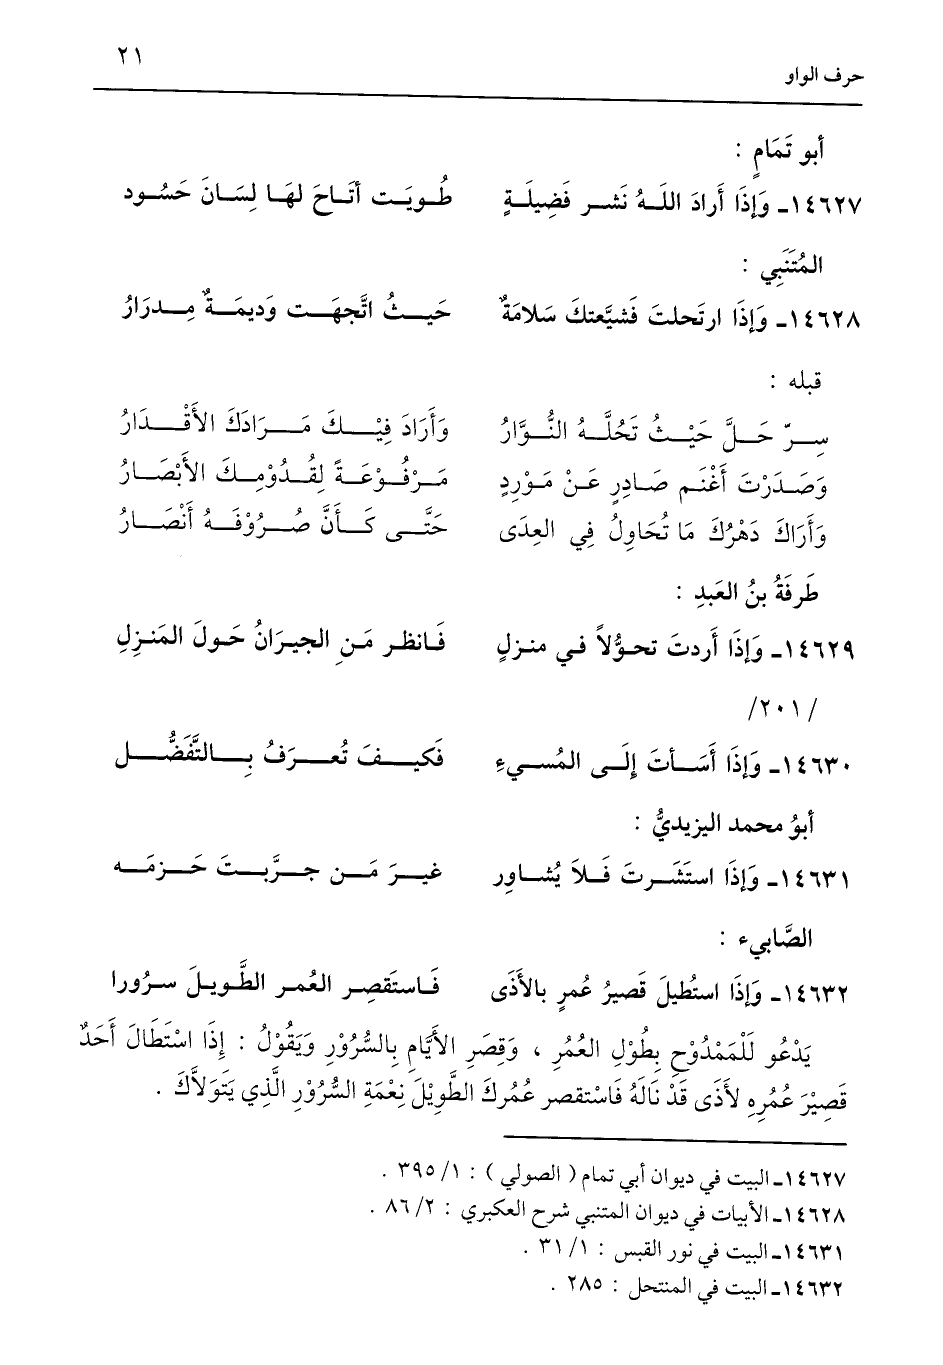 ٢١
حرف الواو
أبو تَمَامٍ :
١٤٦٢٧ـ وَإِذَا أَرادَ اللَـهُ نَشـر فَضِيلَـةٍ طُـويَـت أتَـاحَ لهَـا لِسَـانَ حَسُـود
المُتَنَبِي :
١٤٦٢٨ـ وَإِذَا ارتَحلتَ فَشيَّعتكَ سَلامَةٌ حَيـثُ اتَّجهَـت وَديمَـةٌ مِـدرَارُ
قبله :
سِـرّ حَـلَّ حَيْـثُ تَحُلَّـهُ النُّـوَّارُ وَأَرَادَ فِيْـكَ مَـرَادَكَ الأَقْـدَارُ
وَصَـدَرْتَ أَغْنَـم صَـادِرٍ عَـنْ مَـوْرِدٍ مَـرْفُـوْعَـةً لِقُـدُوْمِـكَ الأَبْصَـارُ
وَأَرَاكَ دَهْرُكَ مَا تُحَاوِلُ فِي العِدَى حَتَّـى كَـأَنَّ صُـرُوْفَـهُ أَنْصَـارُ
طَرفَةُ بنُ العَبدِ :
١٤٦٢٩ـ وَإِذَا أَردتَ تحـوُّلاً فـي منـزلٍ فَـانظـر مَـنِ الجيـرَانُ حَـولَ المَنـزِلِ
/٢٠١/
١٤٦٣٠ـ وَإِذَا أَسَـأتَ إِلَـى المُسـيءِ فَكيـفَ تُعـرَفُ بِـالتَّفَضُّـل
أبوُ محمد اليزيديُّ :
١٤٦٣١ـ وَإِذَا استَشَـرتَ فَـلاَ يُشـاوِر غيـرَ مَـن جـرَّبـتَ حَـزمَـه
الصَّابيء :
١٤٦٣٢ـ وَإِذَا استُطيلَ قَصيرُ عُمرٍ بالأذَى فَـاستَقصِـر العُمـر الطَّـويـلَ سـرُورا
يَدْعُو لَلْمَمْدُوْحِ بِطُوْلِ العُمُرِ ، وَقِصَرِ الأيَّامِ بِالسُّرُوْرِ وَيَقُوْلُ : إِذَا اسْتَطَالَ أَحَدٌ
قَصِيْرَ عُمُرِهِ لأَذَى قَدْ نَالَهُ فَاسْتقصر عُمُركَ الطَّوِيْلَ نِعْمَةِ السُّرُوْرِ الَّذِي يَتَوَلاَّكَ .
١٤٦٢٧ـ البيت في ديوان أبي تمام ( الصولي ) : ١/ ٣٩٥ .
١٤٦٢٨ـ الأبيات في ديوان المتنبي شرح العكبري : ٢/ ٨٦ .
١٤٦٣١ـ البيت في نور القبس : ١/ ٣١ .
١٤٦٣٢ـ البيت في المنتحل : ٢٨٥ .